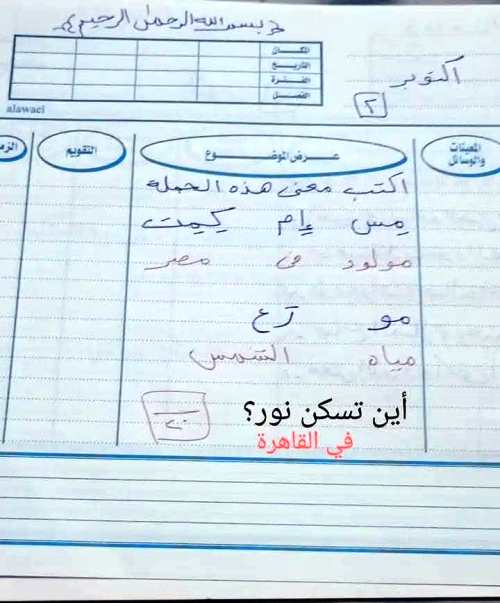 بسم الله الرحمن الرحيم
أكتوبر
٢
المكان
التاريخ
الفترة
الفصل
alawael
المعينات والوسائل
عرض الموضوع
التقويم
الزم
اكتب معنى هذه الجملة
مِس إم كِمِت
مولود في مصر
مو رَع
مياه الشمس
أين تسكن نور؟
في القاهرة
٢٠